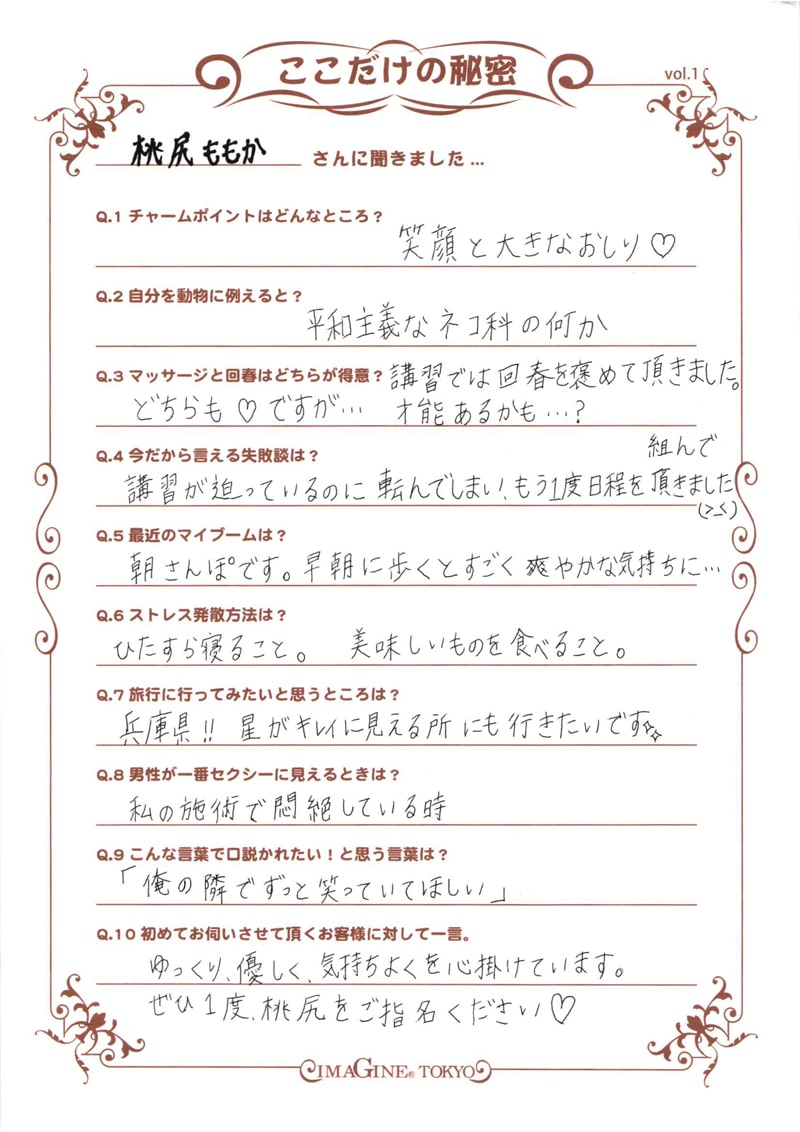 ここだけの秘密
vol.1
桃尻ももか さんに聞きました...
Q.1 チャームポイントはどんなところ？
笑顔と大きなおしり♡
Q.2 自分を動物に例えると？
平和主義なネコ科の何か
Q.3 マッサージと回春はどちらが得意？ 講習では回春を褒めて頂きました。
どちらも♡ですが… 才能あるかも…？
Q.4 今だから言える失敗談は？
組んで
講習が迫っているのに転んでしまい、もう1度日程を頂きました
(>_<)
Q.5 最近のマイブームは？
朝さんぽです。早朝に歩くとすごく爽やかな気持ちに…
Q.6 ストレス発散方法は？
ひたすら寝ること。 美味しいものを食べること。
Q.7 旅行に行ってみたいと思うところは？
兵庫県!! 星がキレイに見える所にも行きたいです✨
Q.8 男性が一番セクシーに見えるときは？
私の施術で悶絶している時
Q.9 こんな言葉で口説かれたい！と思う言葉は？
「俺の隣でずっと笑っていてほしい」
Q.10 初めてお伺いさせて頂くお客様に対して一言。
ゆっくり、優しく、気持ちよくを心掛けています。
ぜひ1度、桃尻をご指名ください♡
IMAGINE® TOKYO